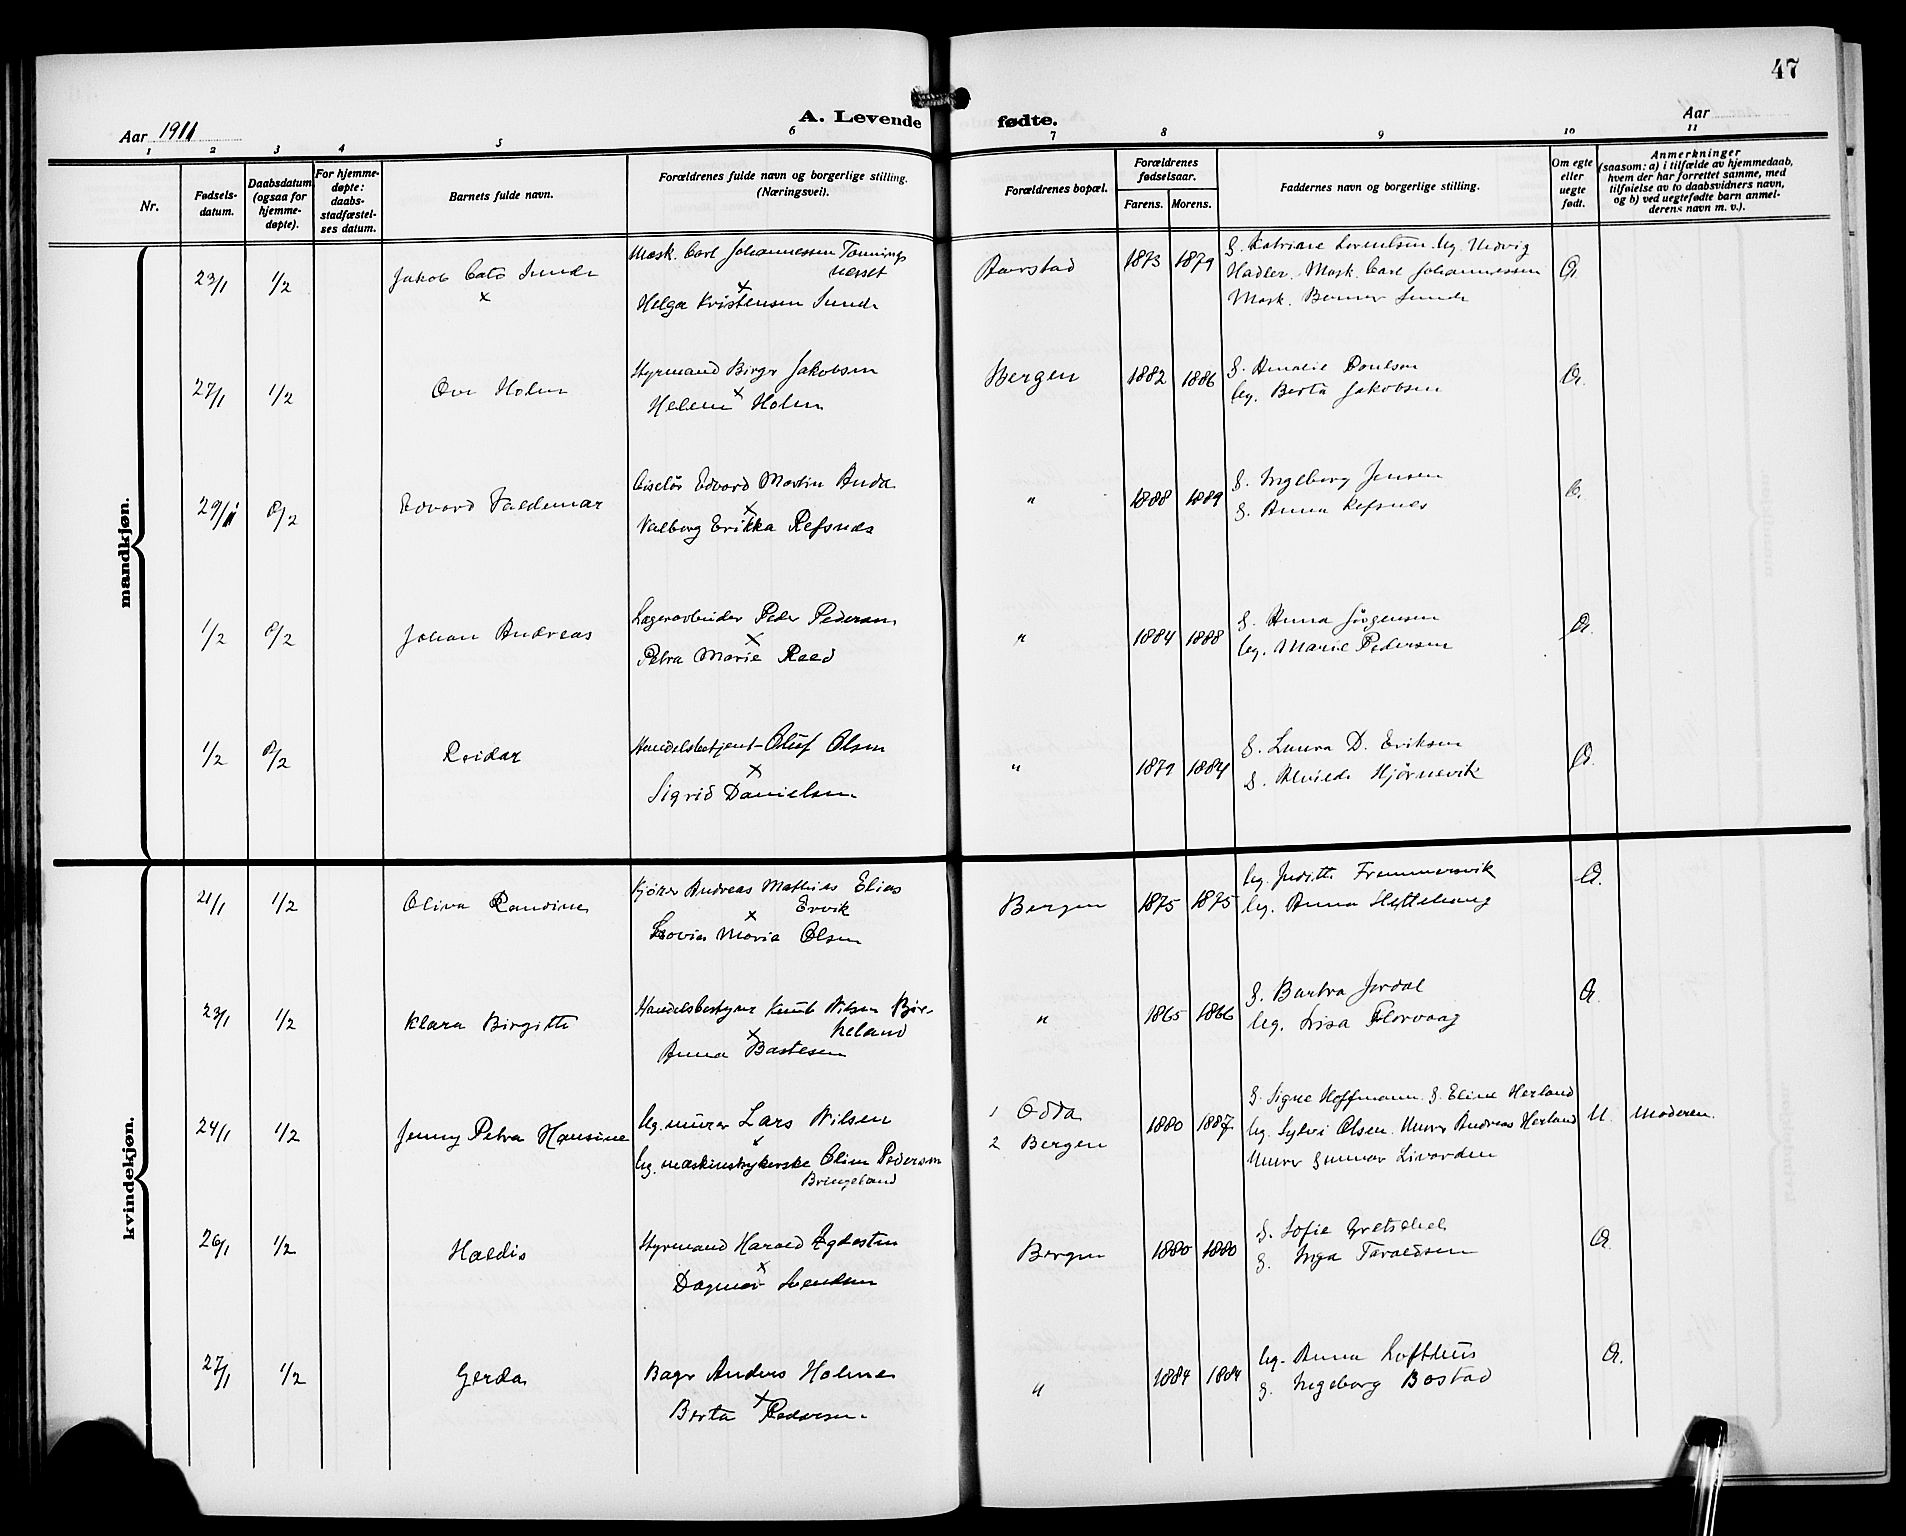 47
A. Levende fødte.
Aar 1911
Aar
1 2 3 4 5 6 7 8 9 10 11
Nr.
Fødsels-
datum.
Daabsdatum
(ogsaa for
hjemme-
døpte).
For hjemme-
døpte:
daabs-
stadfæstel-
ses datum.
Barnets fulde navn.
Forældrenes fulde navn og borgerlige stilling.
(Næringsvei).
Forældrenes bopæl.
Forældrenes
fødselsaar.
Farens. Morens.
Faddernes navn og borgerlige stilling.
Om egte
eller
uegte
født.
Anmerkninger
(saasom: a) i tilfælde av hjemmedaab,
hvem der har forrettet samme, med
tilføielse av to daabsvidners navn,
og b) ved uegtefødte barn anmel-
derens navn m. v.).
mandkjøn.
23/1 1/2 Jakob Cato Sunde
x
Mask. Carl Johannessen Tonnings
neset
x
Helga Kristensen Sunde
Aarstad 1873 1879
Lorentsen. Ug. Hedvig
Hadler. Mask. Carl Johannessen
Mask. Berner Sunde
27/1 1/2 Ove Holm
Styrmand Birger Jakobsen
x
Helene Holm
Bergen 1882 1886
G. Amalie Poulson
Ug. Berta Jakobsen
29/1 8/2 Edvard Valdemar
Ciselør Edvard Martin Anda
x
Valborg Erikka Refsnes
" 1888 1889
G. Ingeborg Jensen
G. Anna Refsnes
1/2 8/2 Johan Andreas
Lagerarbeider Peder Pedersen
x
Petra Marie Roed
" 1884 1888
G. Anna Jørgensen
Ug. Marie Pedersen
1/2 8/2 Reidar
Handelsbetjent Oluf Olsen
x
Sigrid Danielsen
" 1879 1884
G. Laura D. Eriksen
G. Alvilde Hjørnevik
kvindekjøn.
21/1 1/2 Oliva Randine
Kjører Andreas Mathias Elias
Ervik
x
Lovise Marie Olsen
Bergen 1875 1875
Ug. Judith Frammersvik
Ug. Anna
23/1 1/2 Klara Birgitte
Handelsbestyrer Knut Nilsen Bir-
keland
x
Anna Bastesen
" 1865 1866
G. Barbra Jordal
Ug. Lisa Florvaag
24/1 1/2 Jenny Petra Hansine
Ug. murer Lars Nilsen
x
Ug. maskinstrykerske Oline Pedersen
Bringeland
1 Odda
2 Bergen
1880 1887
G. Signe Hoffmann. G. Eline Herland
Ug. Sylvi Olsen. Murer Andreas Herland
Murer Gunnar Livarden
U. Moderen.
26/1 1/2 Haldis
Styrmand Harald Egdesten
x
Dagmar Svendsen
Bergen 1880 1880
G. Sofie Gretschel
G. Inga Taraldsen
27/1 1/2 Gerda
Bager Anders Holme
x
Berta Pedersen
" 1884 1884
Ug. Anna Lofthus
G. Ingeborg Bostad